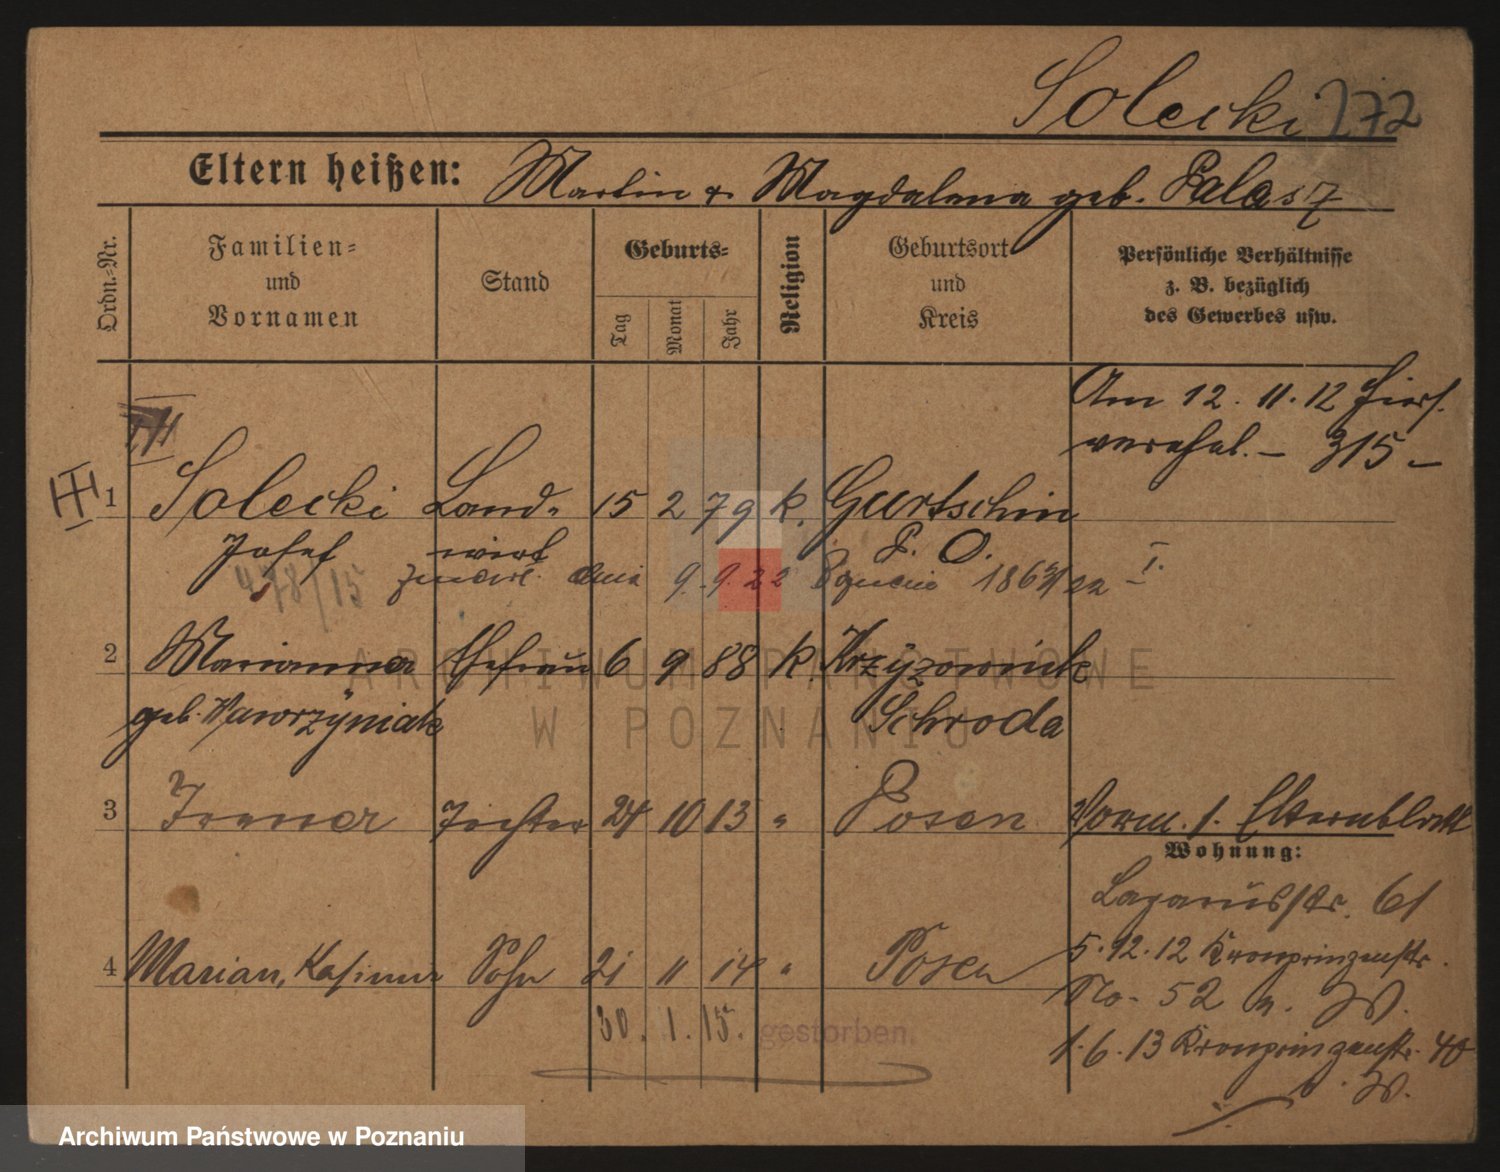 Solecki 272
Eltern heißen: Martin & Magdalena geb. Palasz
Ordn.-Nr.
Familien- und Vornamen
Stand
Geburts-
Tag
Monat
Jahr
Religion
Geburtsort und Kreis
Persönliche Verhältnisse
z. B. bezüglich
des Gewerbes usw.
Am 12. 11. 12 hier
verehel. – 315 –
1 Solecki Land- 15 2 79 k. Gurtschin
Josef wirt P. O.
478/15 dnia 9. 9. 22 I.
2 Marianna Ehefrau 6 9 88 k. Krzyzownik
geb. Wawrzyniak Schroda
3 Irena Tochter 24 10 13 " Posen
Vorm. 1. Elternblatt
Wohnung:
Lazarusstr. 61
4 Marian, Kasimir Sohn 21 11 14 " Posen
5. 12. 12 Kronprinzenstr.
No. 52 b. W.
30. 1. 15. gestorben.
1. 6. 13 Kronprinzenstr. 40
b. W.
ARCHIWUM PAŃSTWOWE
W POZNANIU
Archiwum Państwowe w Poznaniu